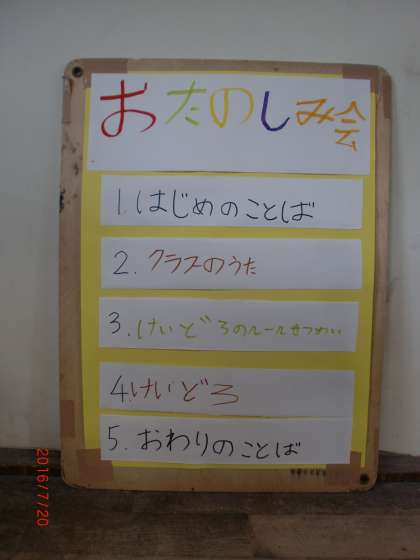 おたのしみ会
1. はじめのことば
2. クラスのうた
3. けいどろのルールせつめい
4. けいどろ
5. おわりのことば
2016/7/20